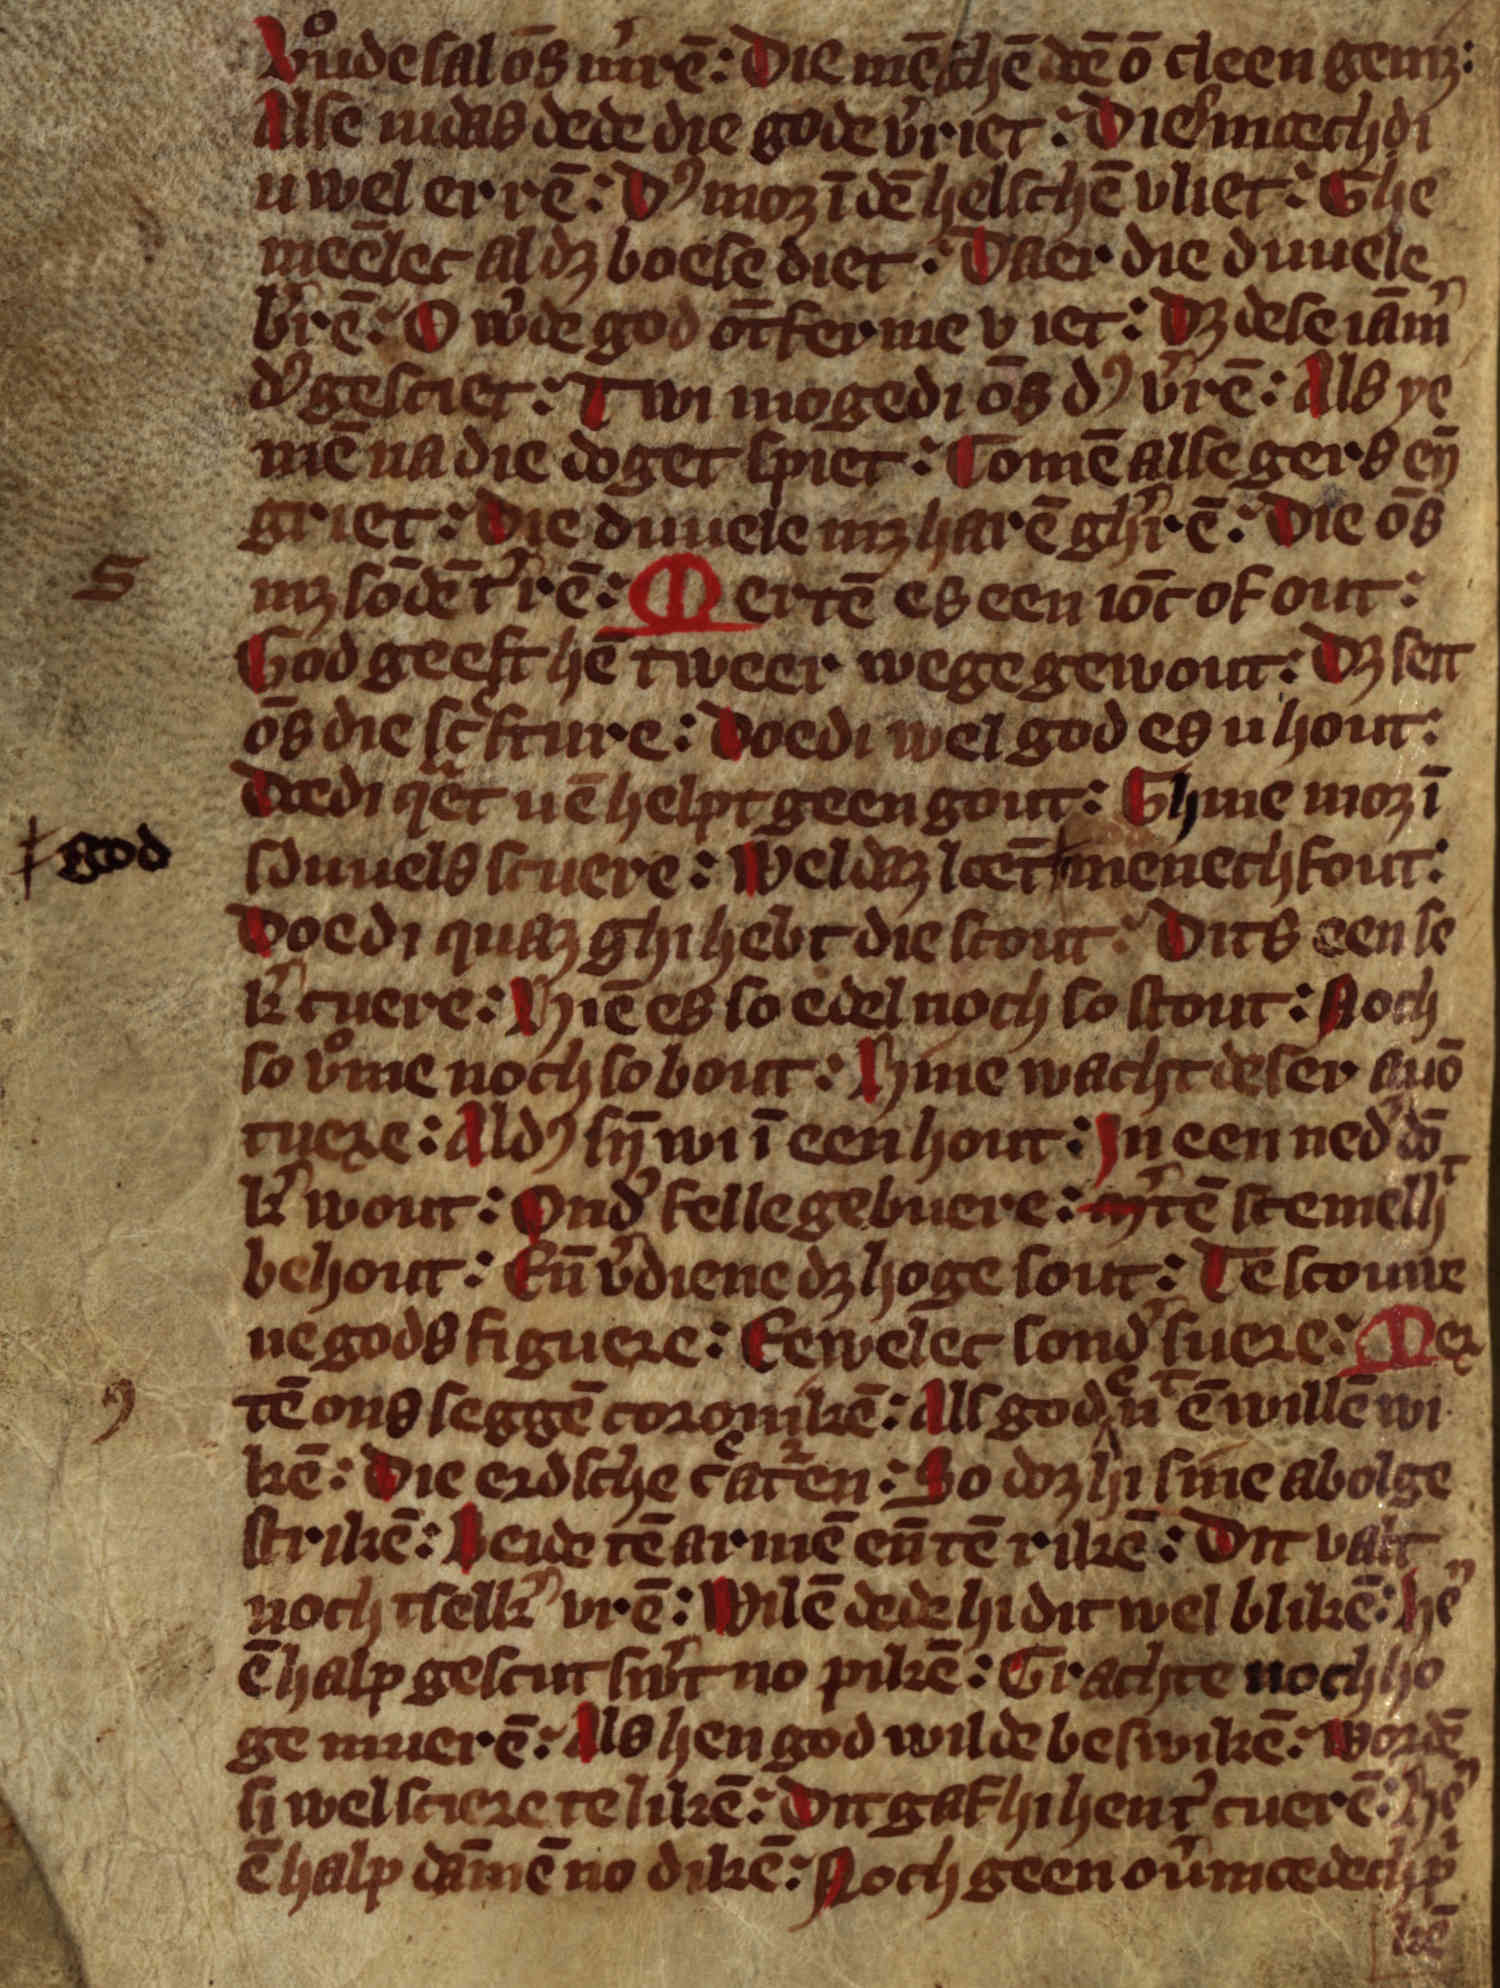 Vͦude sal ōs m̉rē: Die mēschē dē ō cleen gemꝫ:
Alse iudas dede die gode v̉riet: Die smaech di
u wel errē: Dꝰ moꝫ ī dē helschē vliet: Ghe
meēlec al dꝫ boese diet: Daer die duuele
b̉rē: O w̉de god ōtferme v iet: Dꝫ dese iām̉
dꝰ gesciet: Twi mogedi ōs dꝰ v̉rē: Als ye
mē na die doget spiet: Comē alse gers eñ
griet: Die duuele mꝫ harē gh̉rē: Die ōs
S
mꝫ sōdē t̉rē: Mertē es een iōc of out:
God geeft hē tweer wege gewout: Dꝫ seit
ōs die sc̉fture: Doedi wel god es u hout:
Doedi qͤt uē helpt geen gout: Ghine moꝫ ī
† god
sduuels scuere: Wel daꝫ loet menech fout:
Doedi quaꝫ ghi hebt die scout: Dits een se
k̉ cuere: Hiē es so edel noch so stout: Noch
so vͦme noch so bout: Hine wacht deser auō
tuere: Aldꝰ sijn wi ī een hout: In een ned̉ dō
k̉ wout: Ond̉ felle gebuere: M̉tē stemellijc
behout: Eñ v̉diene dꝫ hoge sout: Te scouwe
ne gods figuere: Eewelec sond̉ suere: Mer
,
tē ons seggē coronikē: Als god niet ē willē wi
kē: Die erdsche creatuerēn: So doꝫ hi sine abolge
strikē: Beide tē armē eñ tē rikē: Dit valt
noch tselk̉ vrē: Wilē dede hi dit wel blikē: hē̉
ē halp gescut sw̉t no pikē: Grachte noch ho
ge muerē: Als hen god wilde beswikē: Wordē
si wel sciere te likē: Dit gaf hi hen t̉ cuerē: hē̉
ē halp dāmē no dikē: Noch geen oủmoedech pͥ
kē